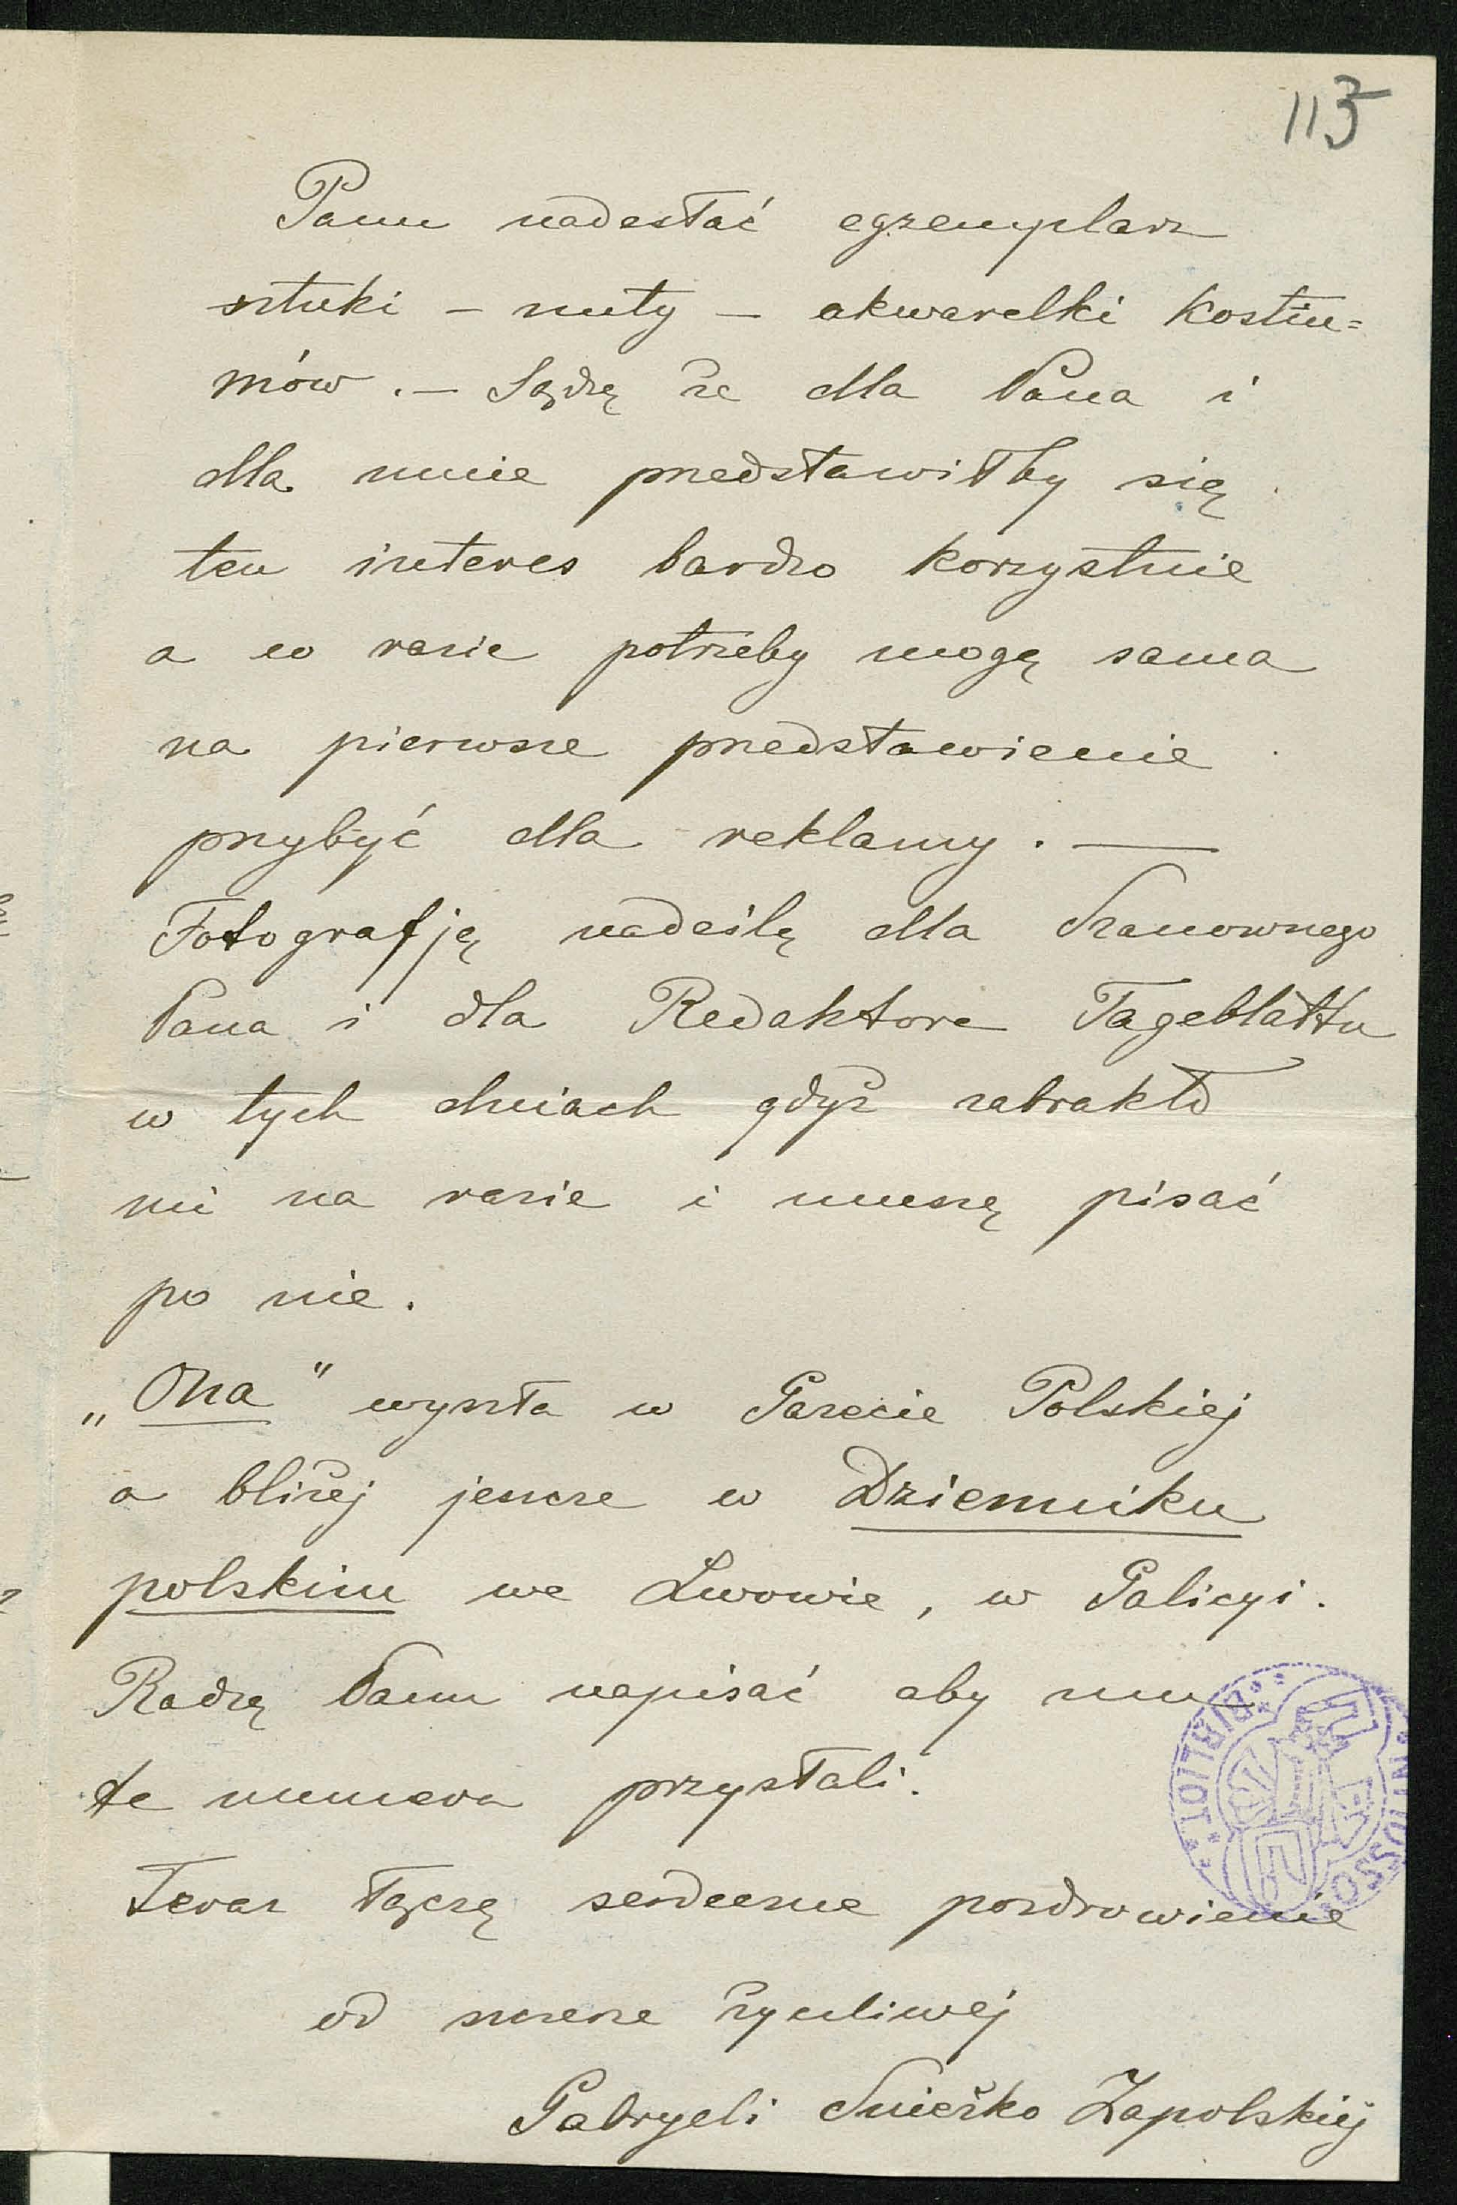 115
Panu nadesłać egzemplarz
sztuki – nuty – akwarelki kostiu=
mów. – Sądzę że dla Pana i
dla mnie przedstawiłby się
ten interes bardzo korzystnie
a w razie potrzeby mogę sama
na pierwsze przedstawienie
przybyć dla reklamy. —
Fotografję nadeślę dla Szanownego
Pana i dla Redaktora Tageblattu
w tych dniach gdyż zabrakło
mi na razie i muszę pisać
po nie.
„Ona" wyszła w Gazecie Polskiej
a bliżej jeszcze w Dzienniku
polskim we Lwowie, w Galicyi.
Radzę Panu napisać aby mu
te numera przysłali.
Teraz łączę serdeczne pozdrowienie
od szczerze życzliwej
Gabryeli Śnieżko Zapolskiej
BIBLIOT.
OSSO